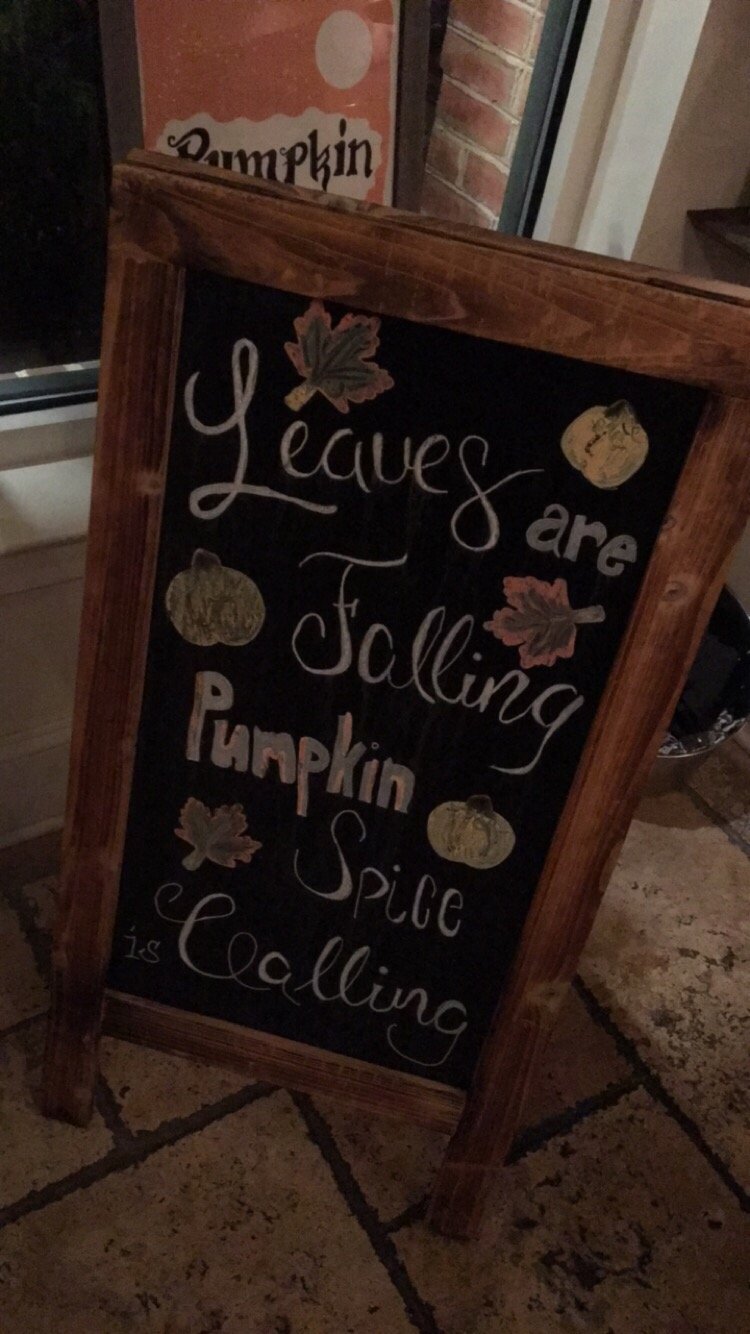 Pumpkin
Leaves are
Falling
Pumpkin
Spice
is Calling